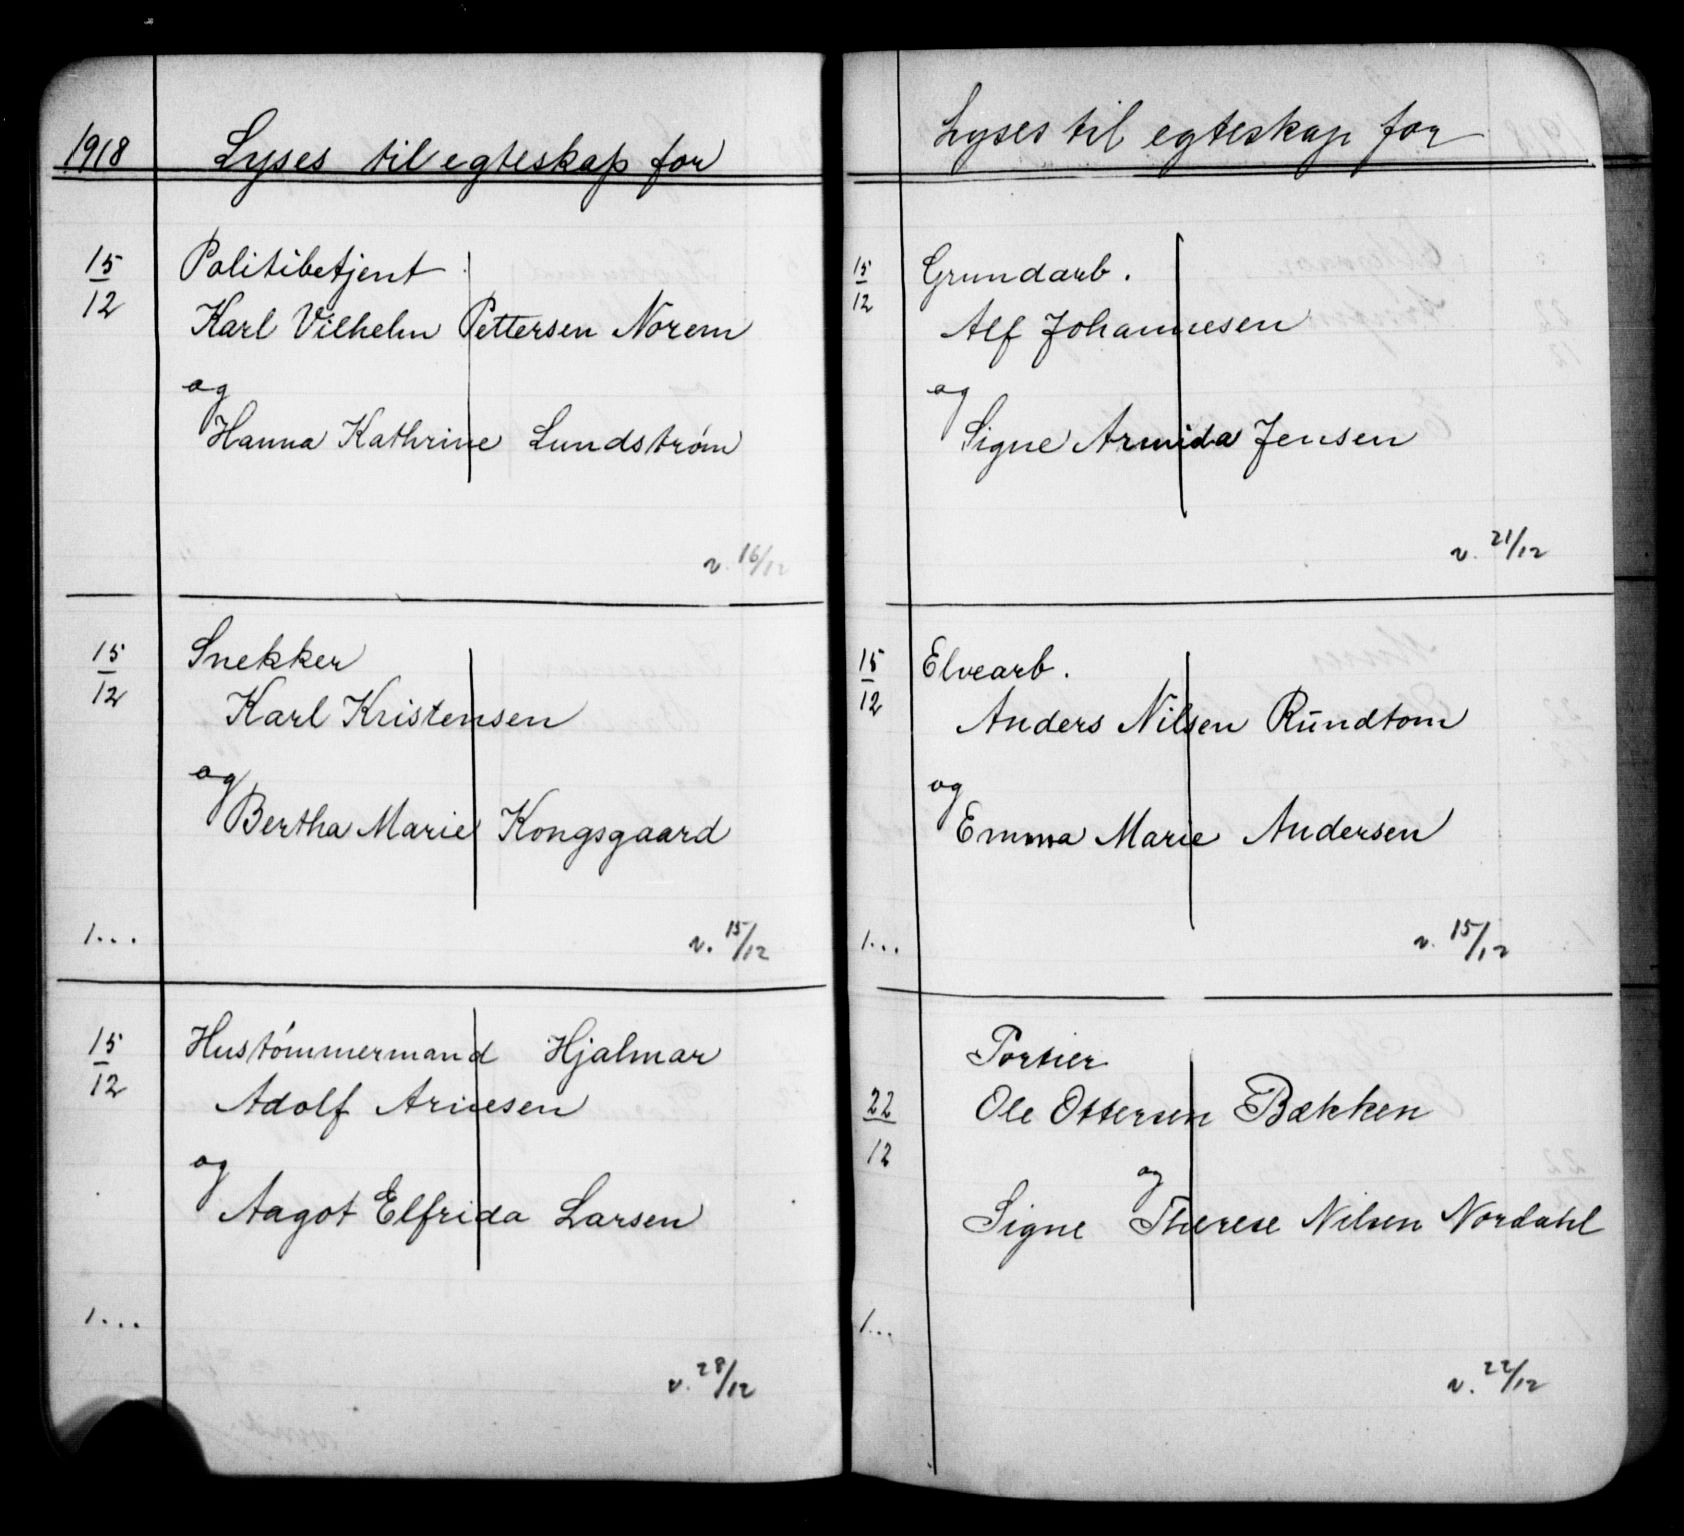 1918 Lyses til egteskap for
15/12 Politibetjent
Karl Vilhelm Pettersen Norem
og
Hanna Kathrine Lundstrøm
v. 16/12
15/12 Snekker
Karl Kristensen
og
Bertha Marie Kongsgaard
1... v. 15/12
15/12 Hustømmermand Hjalmar
Adolf Arnesen
og
Aagot Elfrida Larsen
1...
v. 28/12
Lyses til egteskap for
15/12 Grundarb.
Alf Johannesen
og
Signe Armida Jensen
v. 21/12
15/12 Elvearb.
Anders Nilsen Rundtom
og
Emma Marie Andersen
1... v. 15/12
Portier
22/12 Ole Ottersen Bækken
og
Signe Therese Nilsen Nordahl
1...
v. 22/12